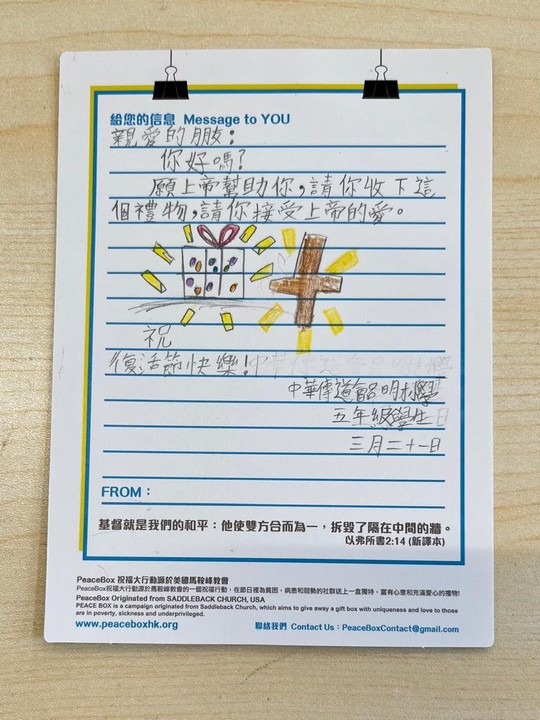 給您的信息 Message to YOU
親愛的朋友：
你好嗎？
願上帝幫助你，請你收下這
個禮物，請你接受上帝的愛。
祝
復活節快樂！
中華傳道會呂明才小學
五年級學生
三月二十一日
FROM：
基督就是我們的和平：他使雙方合而為一，拆毀了隔在中間的牆。
以弗所書2:14 (新譯本)
PeaceBox 祝福大行動源於美國馬鞍峰教會
PeaceBox祝福大行動源於馬鞍峰教會的一個祝福行動，在節日裡為貧困、病患和弱勢的社群送上一盒獨特、富有心意和充滿愛心的禮物!
PeaceBox Originated from SADDLEBACK CHURCH, USA
PEACE BOX is a campaign originated from Saddleback Church, which aims to give away a gift box with uniqueness and love to those
are in poverty, sickness and underprivileged.
www.peaceboxhk.org 聯絡我們 Contact Us：PeaceBoxContact@gmail.com